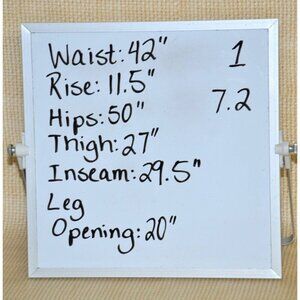 Waist: 42" 1
Rise: 11.5" 7.2
Hips: 50"
Thigh: 27"
Inseam: 29.5"
Leg
Opening: 20"